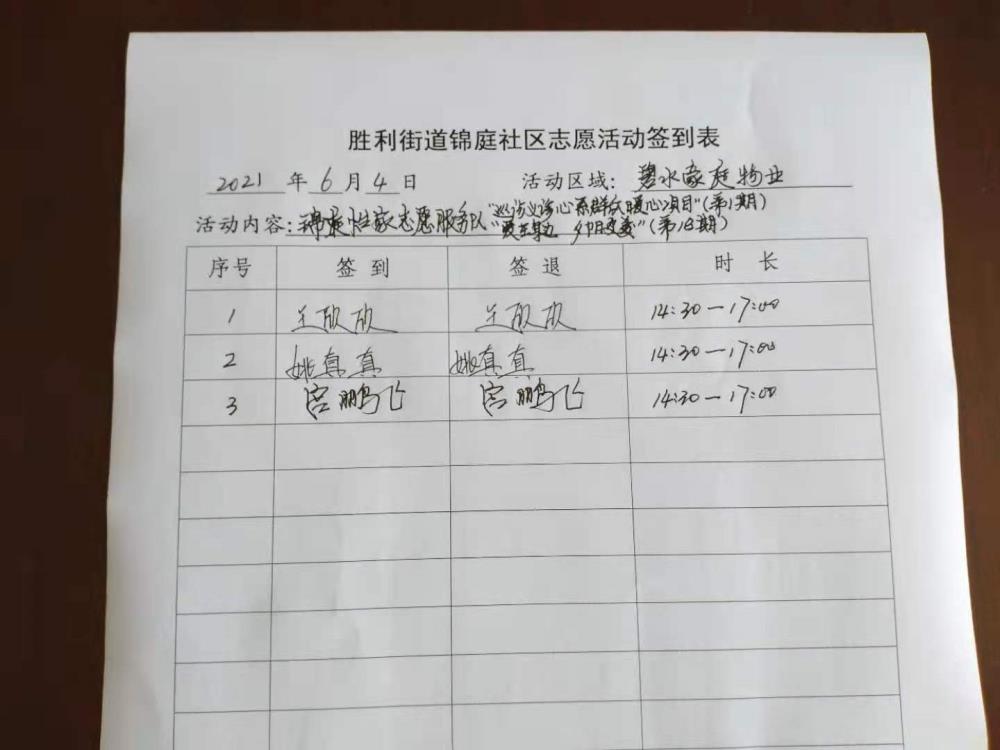 胜利街道锦庭社区志愿活动签到表
2021 年 6 月 4 日 活动区域: 碧水家庭物业
"巡访义诊心系群众暖心项目"(第1期)
活动内容: 志愿服务队 "爱在身边 (第18期)
序号 签到 签退 时长
1 王欣欣 王欣欣 14:30—17:00
2 姚真真 姚真真 14:30—17:00
3 宫鹏飞 宫鹏飞 14:30—17:00